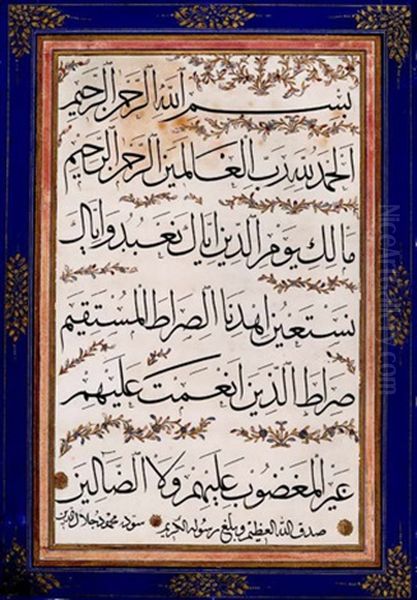 بسم الله الرحمن الرحيم
الحمد لله رب العالمين الرحمن الرحيم
مالك يوم الدين اياك نعبد واياك
نستعين اهدنا الصراط المستقيم
صراط الذين انعمت عليهم
غير المغضوب عليهم ولا الضالين
صدق الله العظيم وبلغ رسوله الكريم سوده محمود جلال الدين
NiceArtGallery.com